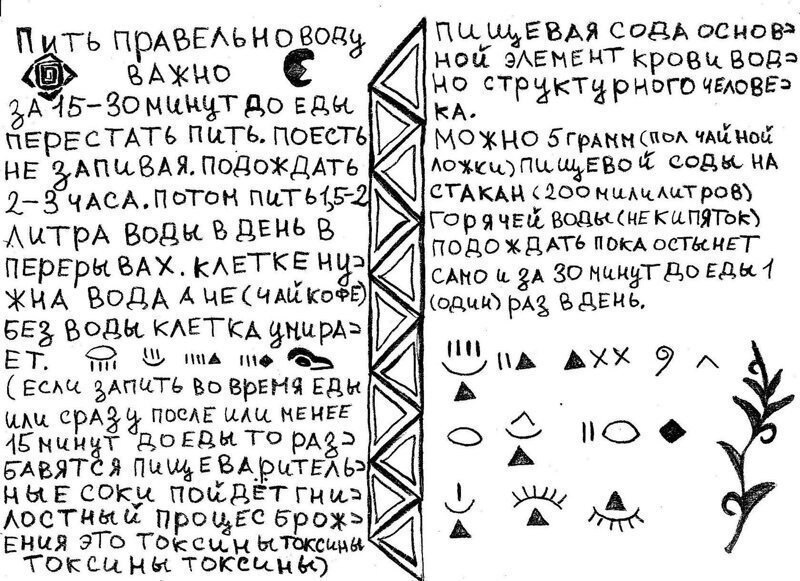 ПИТЬ ПРАВЕЛЬНО ВОДУ
ВАЖНО
ЗА 15-30 МИНУТ ДО ЕДЫ
ПЕРЕСТАТЬ ПИТЬ. ПОЕСТЬ
НЕ ЗАПИВАЯ. ПОДОЖДАТЬ
2-3 ЧАСА. ПОТОМ ПИТЬ 1,5-2
ЛИТРА ВОДЫ В ДЕНЬ В
ПЕРЕРЫВАХ. КЛЕТКЕ НУ-
ЖНА ВОДА А НЕ (ЧАЙ КОФЕ)
БЕЗ ВОДЫ КЛЕТКА УМИРА-
ЕТ.
(ЕСЛИ ЗАПИТЬ ВО ВРЕМЯ ЕДЫ
ИЛИ СРАЗУ ПОСЛЕ ИЛИ МЕНЕЕ
15 МИНУТ ДО ЕДЫ ТО РАЗ-
БАВЯТСЯ ПИЩЕВАРИТЕЛЬ-
НЫЕ СОКИ ПОЙДЁТ ГНИ-
ЛОСТНЫЙ ПРОЦЕС БРОЖ-
ЕНИЯ ЭТО ТОКСИНЫ ТОКСИНЫ
ТОКСИНЫ ТОКСИНЫ)
ПИЩЕВАЯ СОДА ОСНОВ-
НОЙ ЭЛЕМЕНТ КРОВИ ВОД-
НО СТРУКТУРНОГО ЧЕЛОВЕ-
КА.
МОЖНО 5 ГРАММ (ПОЛ ЧАЙНОЙ
ЛОЖКИ) ПИЩЕВОЙ СОДЫ НА
СТАКАН (200 МИЛИЛИТРОВ)
ГОРЯЧЕЙ ВОДЫ (НЕ КИПЯТОК)
ПОДОЖДАТЬ ПОКА ОСТЫНЕТ
САМО И ЗА 30 МИНУТ ДО ЕДЫ 1
(ОДИН) РАЗ В ДЕНЬ.